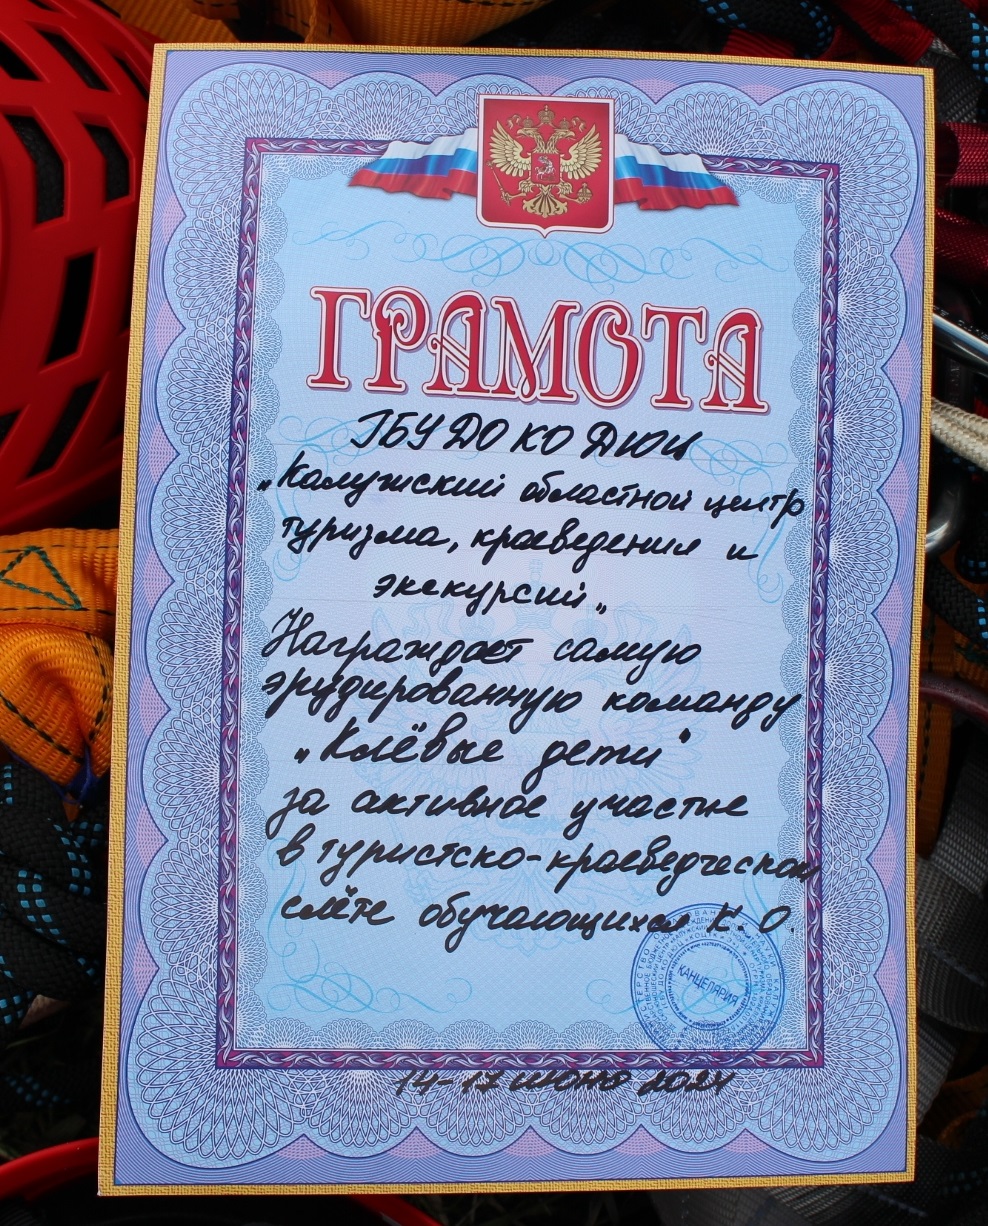 ГРАМОТА
ГБУ ДО КО ДЮЦ
„Калужский областной центр
туризма, краеведения и
экскурсий„
Награждает самую
эрудированную команду
„Клёвые дети"
за активное участие
в туристско-краеведческом
слёте обучающихся К. О.
КАНЦЕЛЯРИЯ
14-17 июня 2024